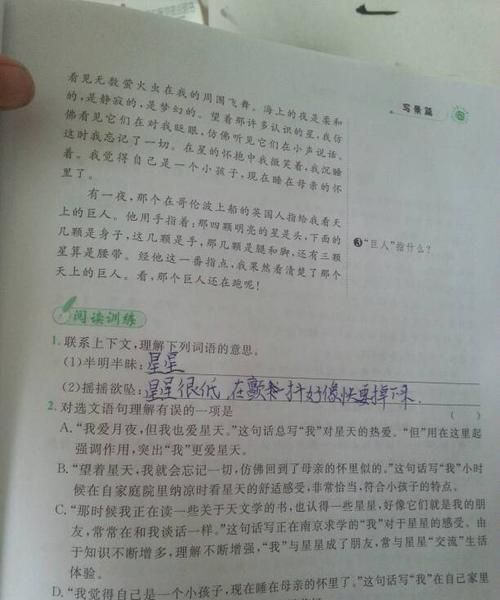 看见无数萤火虫在我的周围飞舞。海上的夜是柔和
的,是静寂的,是梦幻的。望着那许多认识的星,我仿
佛看见它们在对我眨眼,仿佛听见它们在小声说话。
这时我忘记了一切。在星的怀抱中我微笑着,我沉睡
着。我觉得自己是一个小孩子,现在睡在母亲的怀
里了。
有一夜,那个在哥伦波上船的英国人指给我看天
上的巨人。他用手指着:那四颗明亮的星是头,下面的
几颗是身子,这几颗是手,那几颗是腿和脚,还有三颗
星算是腰带。经他这一番指点,我果然看清楚了那个
天上的巨人。看,那个巨人还在跑呢!
写景篇
❸“巨人”指什么?
阅读训练
1. 联系上下文,理解下列词语的意思。
(1)半明半昧:星星
(2)摇摇欲坠:星星很低,在颤抖好像快要掉下来.
2. 对选文语句理解有误的一项是 ( )
A.“我爱月夜,但我也爱星天。”这句话总写“我”对星天的热爱。“但”用在这里起
强调作用,突出“我”更爱星天。
B.“望着星天,我就会忘记一切,仿佛回到了母亲的怀里似的。”这句话写“我”小时
候在自家庭院里纳凉时看星天的舒适感受,非常恰当,符合小孩子的特点。
C.“那时候我正在读一些关于天文学的书,也认得一些星星,好像它们就是我的朋
友,常常在和我谈话一样。”这句话写正在南京求学的“我”对于星星的感受。由
于知识不断增多,理解不断增强,“我”与星星成了朋友,常与星星“交流”生活
体验。
D.“我觉得自己是一个小孩子,现在睡在母亲的怀里了。”这句话写“我”在自己家里